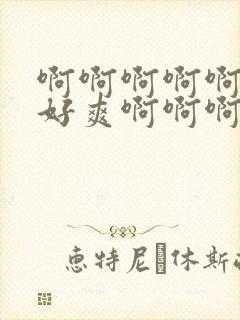 啊啊啊啊啊
好爽啊啊啊
恵特尼 休斯